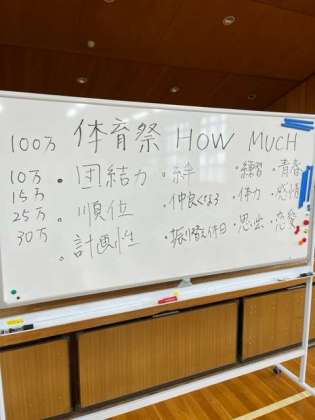 100万 体育祭 HOW MUCH
10万 ・団結力 ・絆 ・練習 ・青春
15万
25万 ・順位 ・仲良くなる ・体力 ・感情
30万
・計画性 ・振替休日 ・思い出 ・恋愛